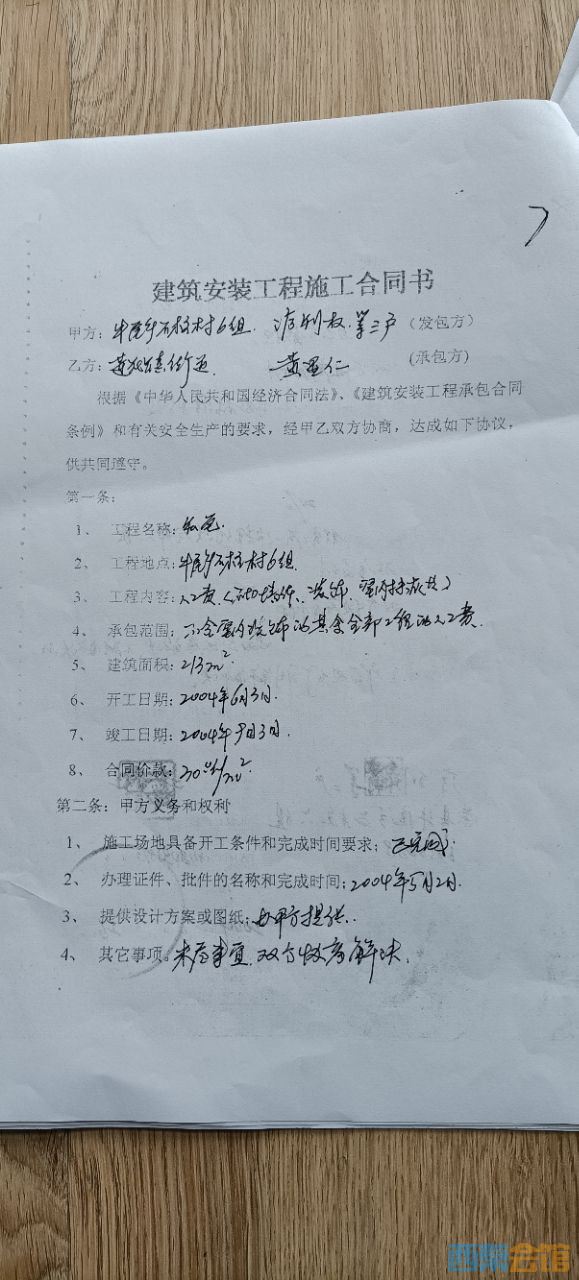 建筑安装工程施工合同书
甲方:牛 乡石 村6组. 第三户 (发包方)
乙方: 黄 仁 (承包方)
根据《中华人民共和国经济合同法》、《建筑安装工程承包合同
条例》和有关安全生产的要求,经甲乙双方协商,达成如下协议,
供共同遵守。
第一条:
1、 工程名称:私宅.
2、 工程地点: 村6组.
3、 工程内容:人工费
4、 承包范围:不含室内装饰的其余全部工程的人工费.
5、 建筑面积:213m².
6、 开工日期:2004年6月3日.
7、 竣工日期:2004年 月3日.
8、 合同价款: /m².
第二条:甲方义务和权利
1、 施工场地具备开工条件和完成时间要求:已完成.
2、 办理证件、批件的名称和完成时间:2004年5月2日.
3、 提供设计方案或图纸:由甲方提供.
4、 其它事项:未尽事宜,双方 解决.
西京会馆